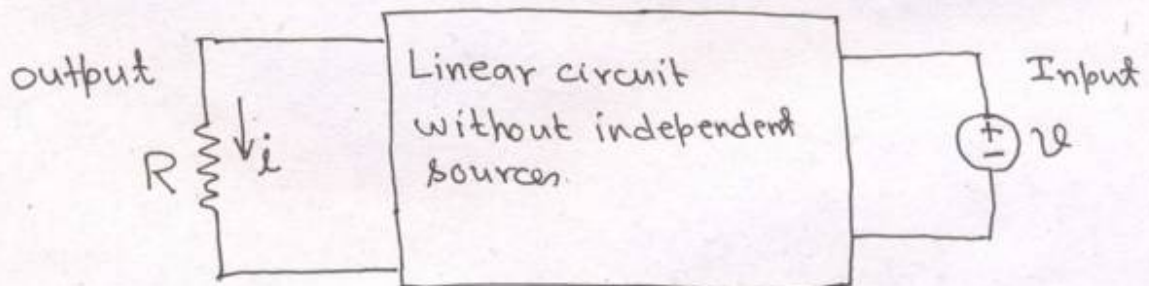 output
R
i
Linear circuit
without independent
sources.
Input
+
-
v